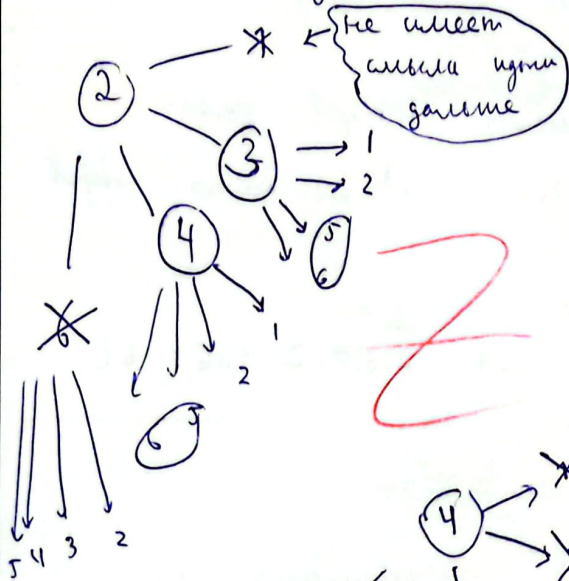 не имеет
смысла идти
дальше
2
3
1
2
5
6
4
1
2
5
6
6
5 4 3 2
4